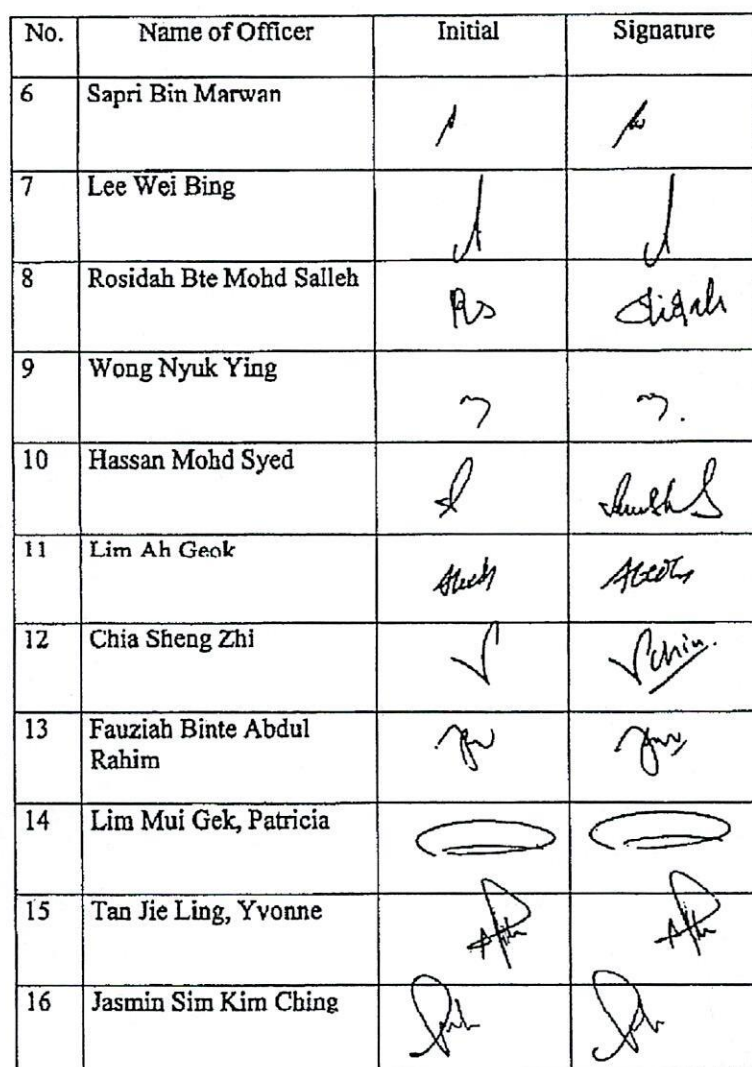 No. Name of Officer Initial Signature
6 Sapri Bin Marwan
7 Lee Wei Bing
8 Rosidah Bte Mohd Salleh Rs
9 Wong Nyuk Ying
10 Hassan Mohd Syed
11 Lim Ah Geok
12 Chia Sheng Zhi Chia.
13 Fauziah Binte Abdul
Rahim
14 Lim Mui Gek, Patricia
15 Tan Jie Ling, Yvonne
16 Jasmin Sim Kim Ching